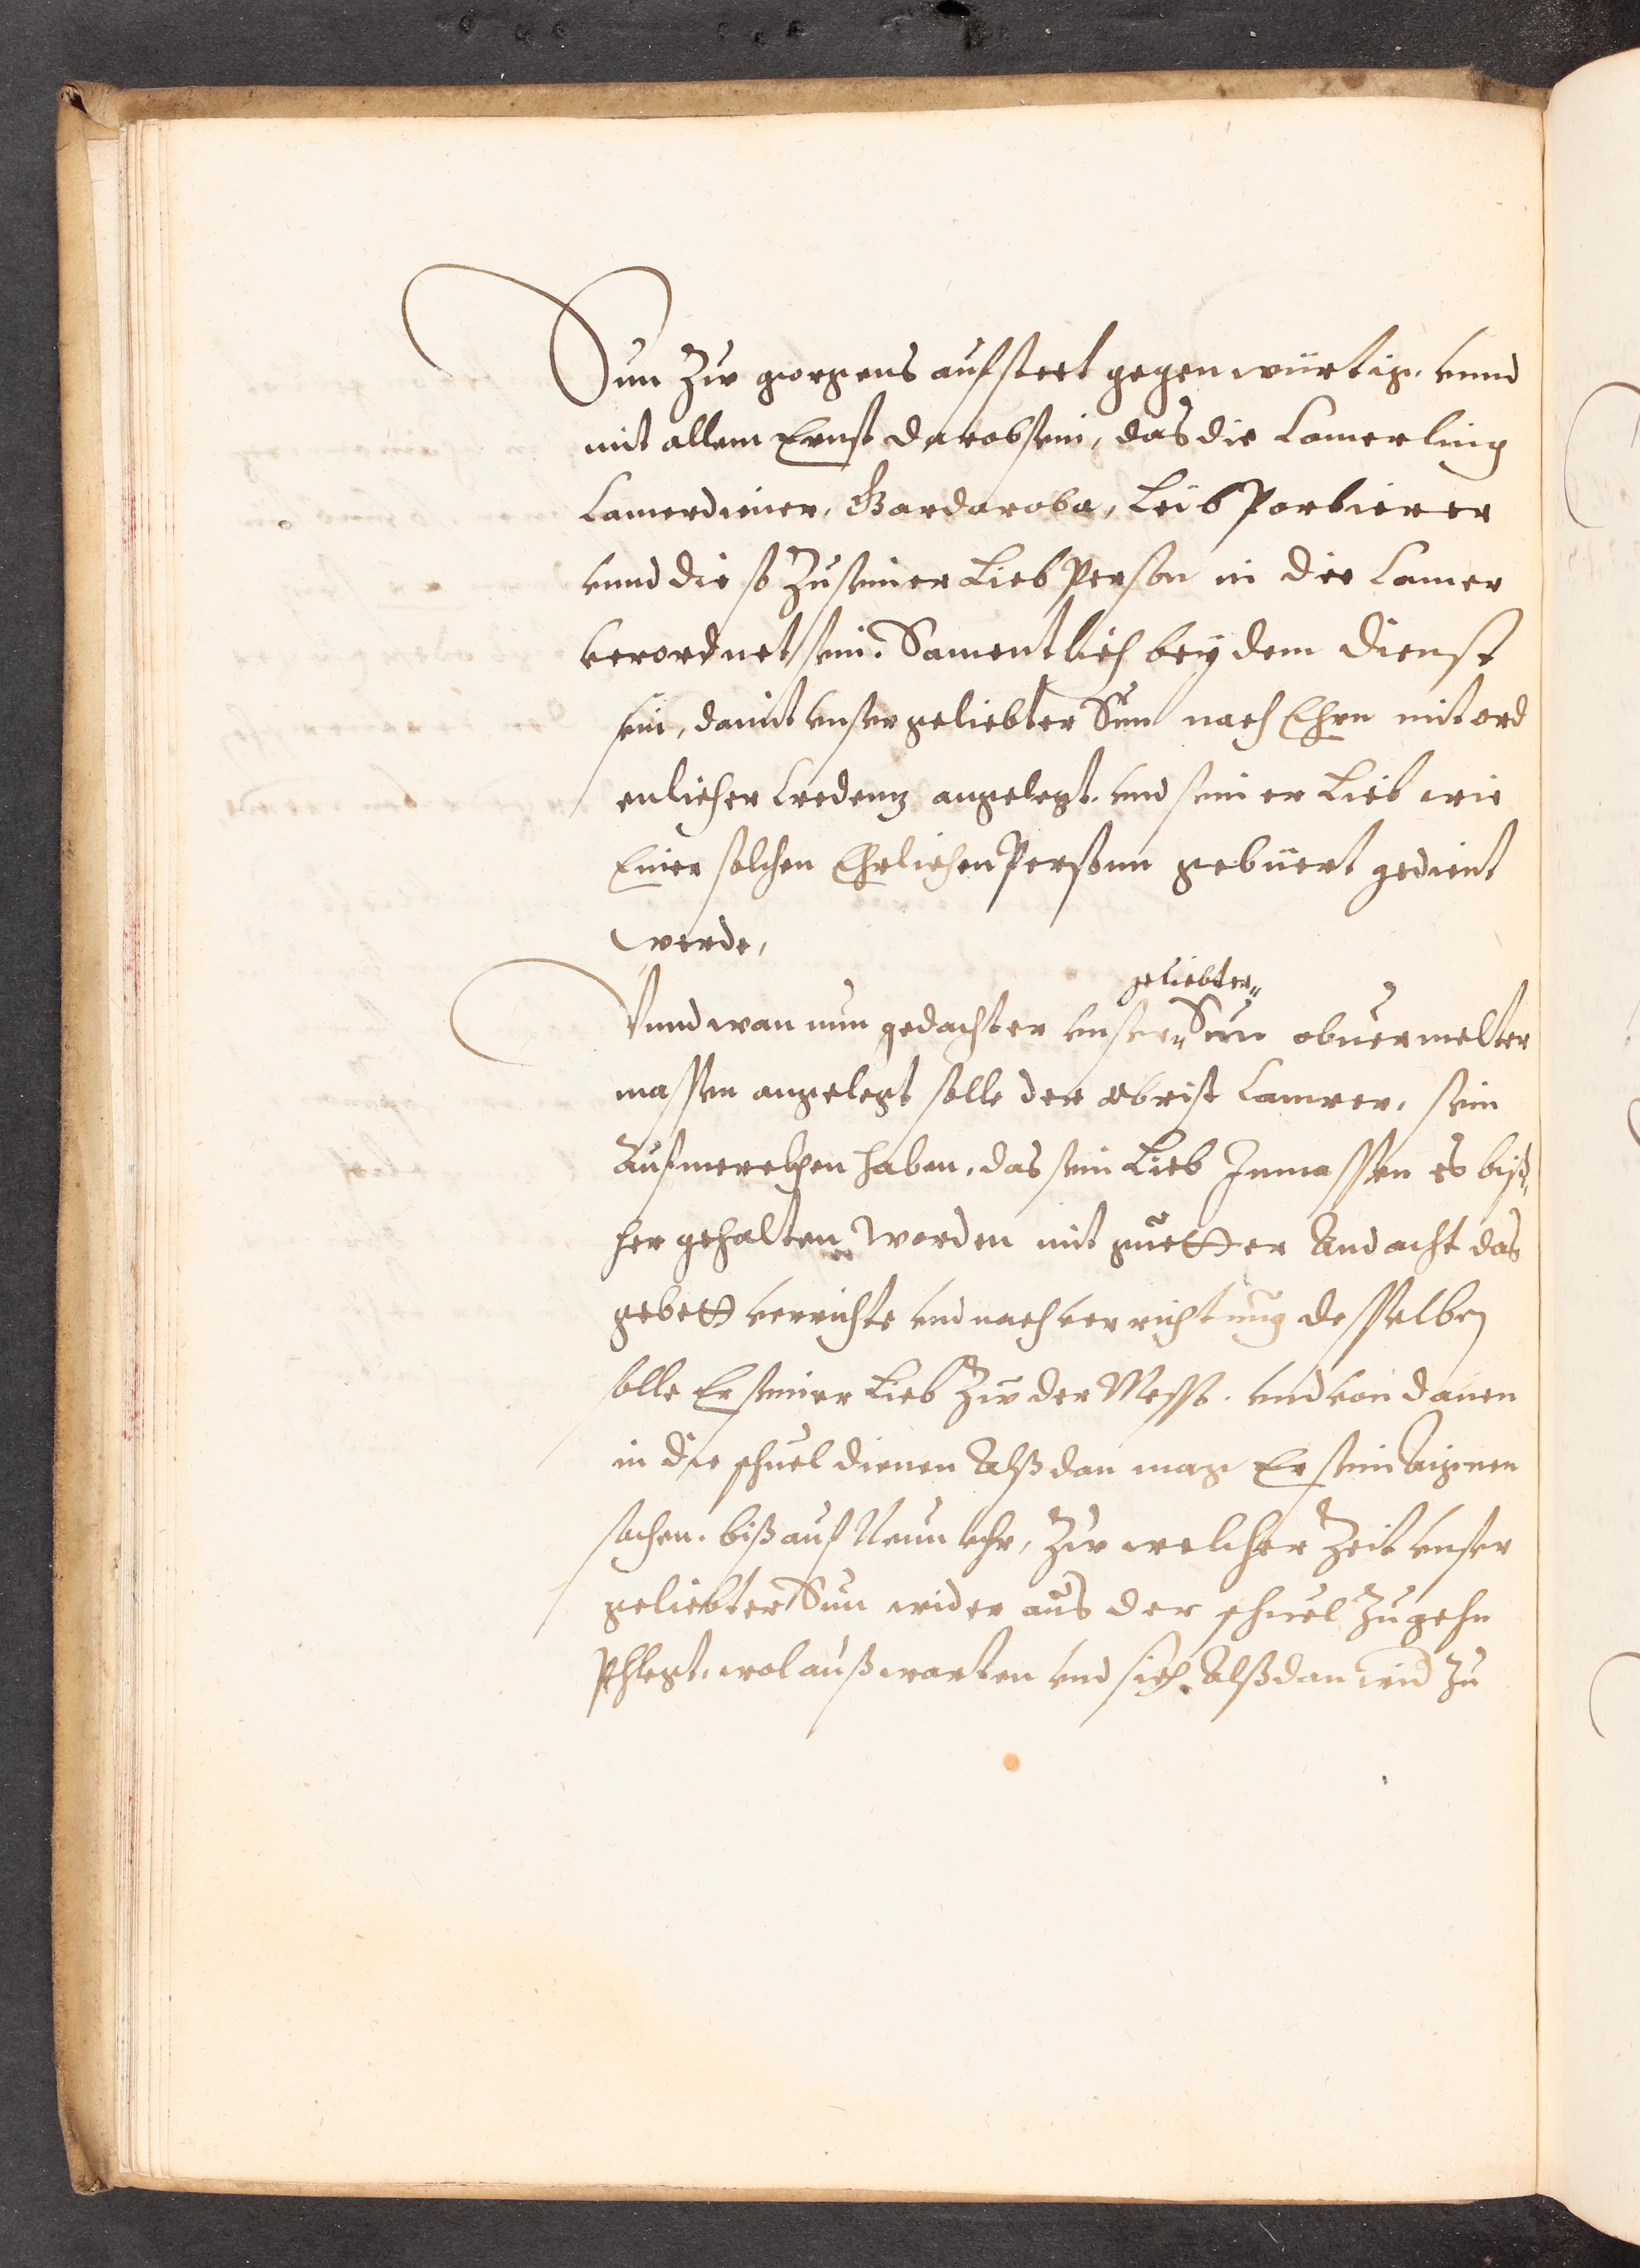 Sun Zur morgens aufsteet gegenwürtig. vnnd
mit allem Ernst darobsein, das die Camerling
Camerdiener, Gvardaroba, Leib Parbierer
vnnd die so Zu seiner Lieb Person in die Camer
verordnet sein. Samentlich bey dem dienst
sein, damit vnser geliebter Sun nach Ehrn mit ord
enlicher Credenz angelegt. vnd seiner Lieb wie
Einer solchen Ehrlichen Persson gebüert gedient
werde,
geliebter„
Vnnd wan nun gedachter vnser„Sun obuermelter
massen angelegt solle der obrist Camrer, sein
Aufmerckhen haben, das sein Lieb Inmassen es biß„
her gehalten worden mit guetter Andacht das
gebett verrichte vnd nach verrichtung desselben
solle Er seiner Lieb Zur der Mesß. vnd von danen
in die schuel dienen Alßdan mag Er sein Aignen
sachen. biß auf Neun vhr, Zur welcher Zeit vnser
geliebter Sun wider aus der schuel Zugehn
Phlegt, wol außwarten vnd sich Alßdan wid Zu